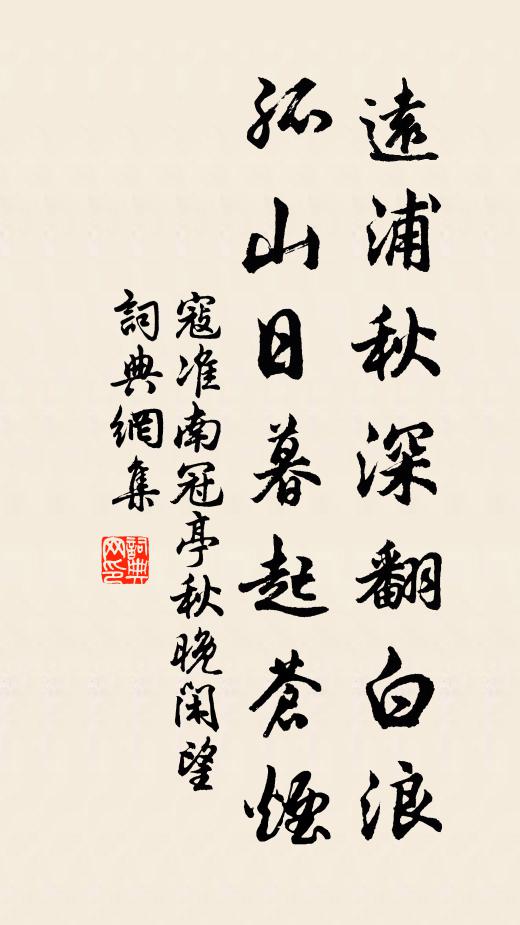 遠浦秋深翻白浪
孤山日暮起蒼煙
寇准南冠亭秋晚閑望
詞典網集
詞典网印